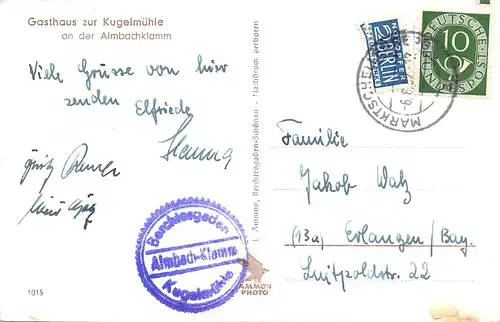 Gasthaus zur Kugelmühle
an der Almbachklamm
Viele Grüsse von hier
senden Elfriede
1015
Berchtesgaden
Almbach-Klamm
Kugelmühle
L. Ammon, Berchtesgaden-Schönau - Nachdruck verboten
AMMON
PHOTO
NOTOPFER
2 BERLIN
STEUERMARKE
DEUTSCHE BUNDESPOST
10
MARKTSCHELLENBERG
Familie
Jakob Walz
(13a) Erlangen/Bay.
Luitpoldstr. 22